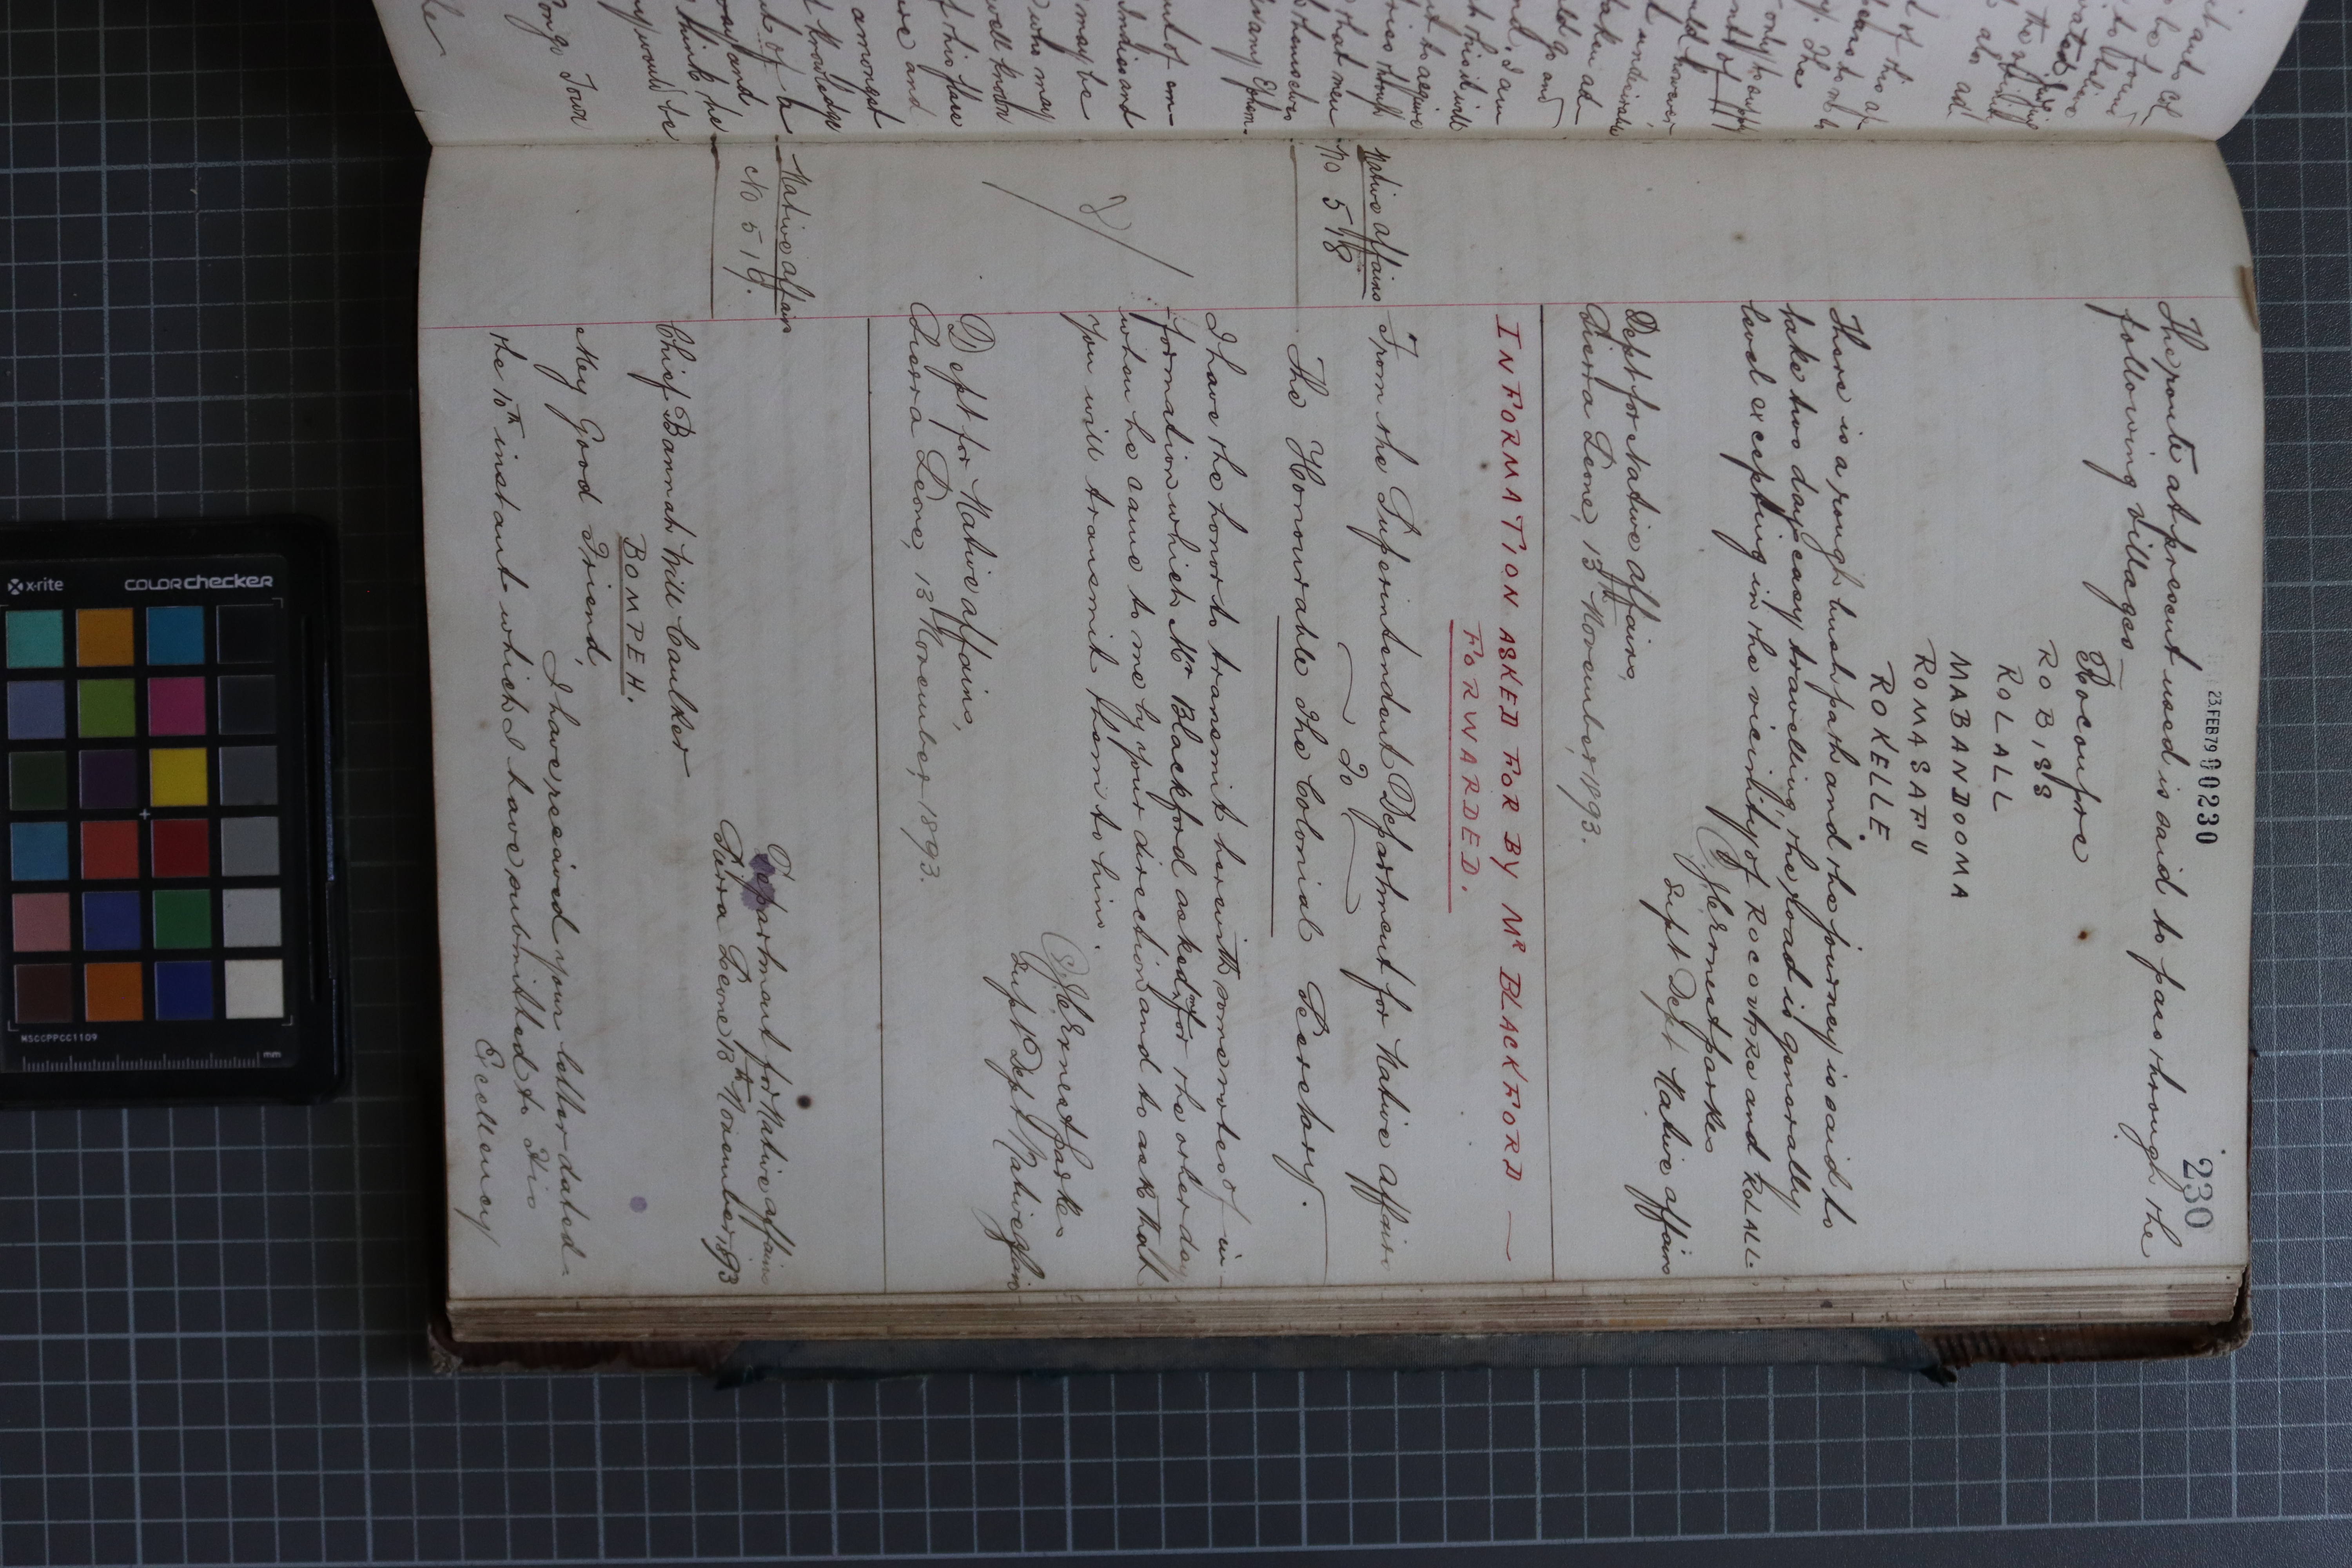 23.FEB79 00230
230
The route at present used is said to pass through the
following villages
Rocoupre
ROBISS
ROLALL
MABANDOOMA
ROMASAFU
ROKELLE
There is a rough bush path and the journey is said to
take two days easy travelling, the road is generally
level excepting in the vicinity of ROCOUPRE and ROLALL.
J.C. Ernest Parkes
Supt Dept Native Affairs
Dept for Native Affairs,
Sierra Leone, 13th November, 1893.
INFORMATION ASKED FOR BY MR BLACKFORD —
FORWARDED.
Native Affairs
No 518
From the Superintendent Department for Native Affairs
To
The Honourable The Colonial Secretary.
I have the honor to transmit herewith some notes of in-
formation which Mr Blackford asked me for the other day
when he came to me by your direction and to ask that
You will transmit them to him.
J.C. Ernest Parkes
Supt Dept Native Affairs
Dept for Native Affairs,
Sierra Leone, 13th November, 1893.
Native Affairs
No 519.
Department for Native Affairs
Sierra Leone 13th November, 1893
Chief Bannah Will Caulker
BOMPEH.
My Good Friend,
I have received your letter dated
the 10th instant which I have submitted to His
Excellency
x-rite colorchecker
MSCCPPCC1109
mm